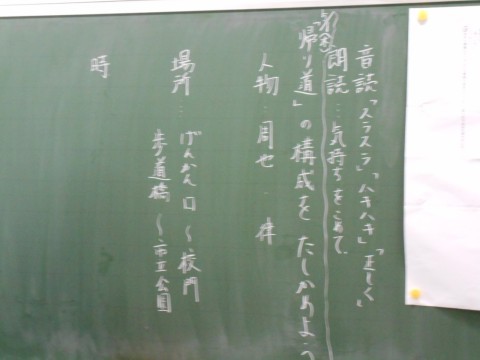 音読「スラスラ」「ハキハキ」「正しく」
朗読…気持ちをこめて
「帰り道」の構成をたしかめよう
人物…周也・律
場所…げんかん口〜校門
歩道橋〜市立公園
時